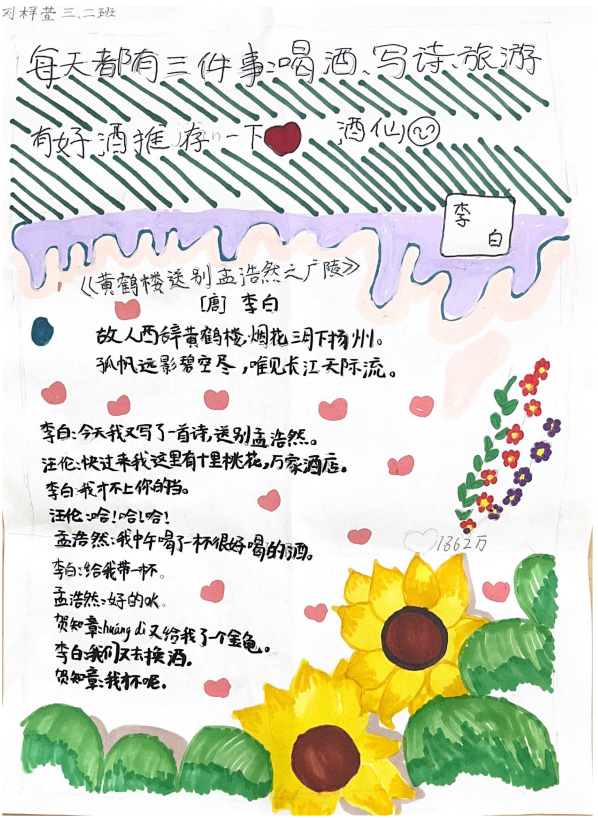 刘梓萱 三、二班
每天都有三件事:喝酒、写诗、旅游
有好酒推存一下 酒仙
李
白
《黄鹤楼送别孟浩然之广陵》
[唐] 李白
故人西辞黄鹤楼,烟花三月下扬州。
孤帆远影碧空尽,唯见长江天际流。
李白:今天我又写了一首诗,送别孟浩然。
汪伦:快过来我这里有十里桃花,万家酒店。
李白:我才不上你的挡。
汪伦:哈!哈!哈!
孟浩然:我中午喝了一杯很好喝的酒。
李白:给我带一杯。
孟浩然:好的OK。
贺知章:huáng dì又给我了一个金龟。
李白:我们又去换酒。
贺知章:我才不呢。
1862万